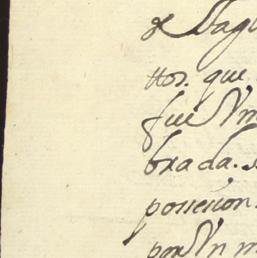 de
ttos. que
fue Vn
brada.
possesion.
por Vn m